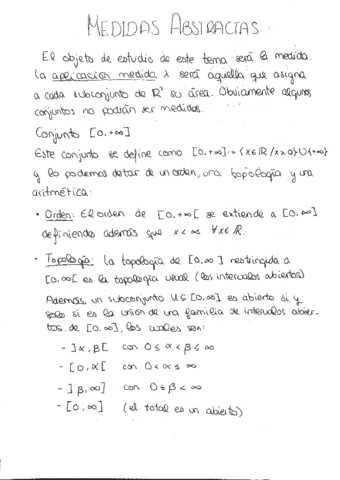 MEDIDAS ABSTRACTAS
El objeto de estudio de este tema será la medida.
La aplicación medida λ será aquella que asigna
a cada subconjunto de ℝ² su área. Obviamente algunos
conjuntos no podrán ser medidos.
Conjunto [0,+∞]
Este conjunto se define como [0,+∞]:= {x∈ℝ/x≥0}∪{+∞}
y lo podemos dotar de un orden, una topología y una
aritmética:
• Orden: El orden de [0,+∞[ se extiende a [0,∞]
definiendo además que x<∞ ∀x∈ℝ.
• Topología: La topología de [0,∞] restringida a
[0,∞[ es la topología usual (los intervalos abiertos)
Además, un subconjunto U⊆[0,∞] es abierto si y
solo si es la unión de una familia de intervalos abier-
tos de [0,∞], los cuales son:
- ]α,β[ con 0≤α<β≤∞
- [0,α[ con 0<α≤∞
- ]β,∞] con 0≤β<∞
- [0,∞] (el total es un abierto)